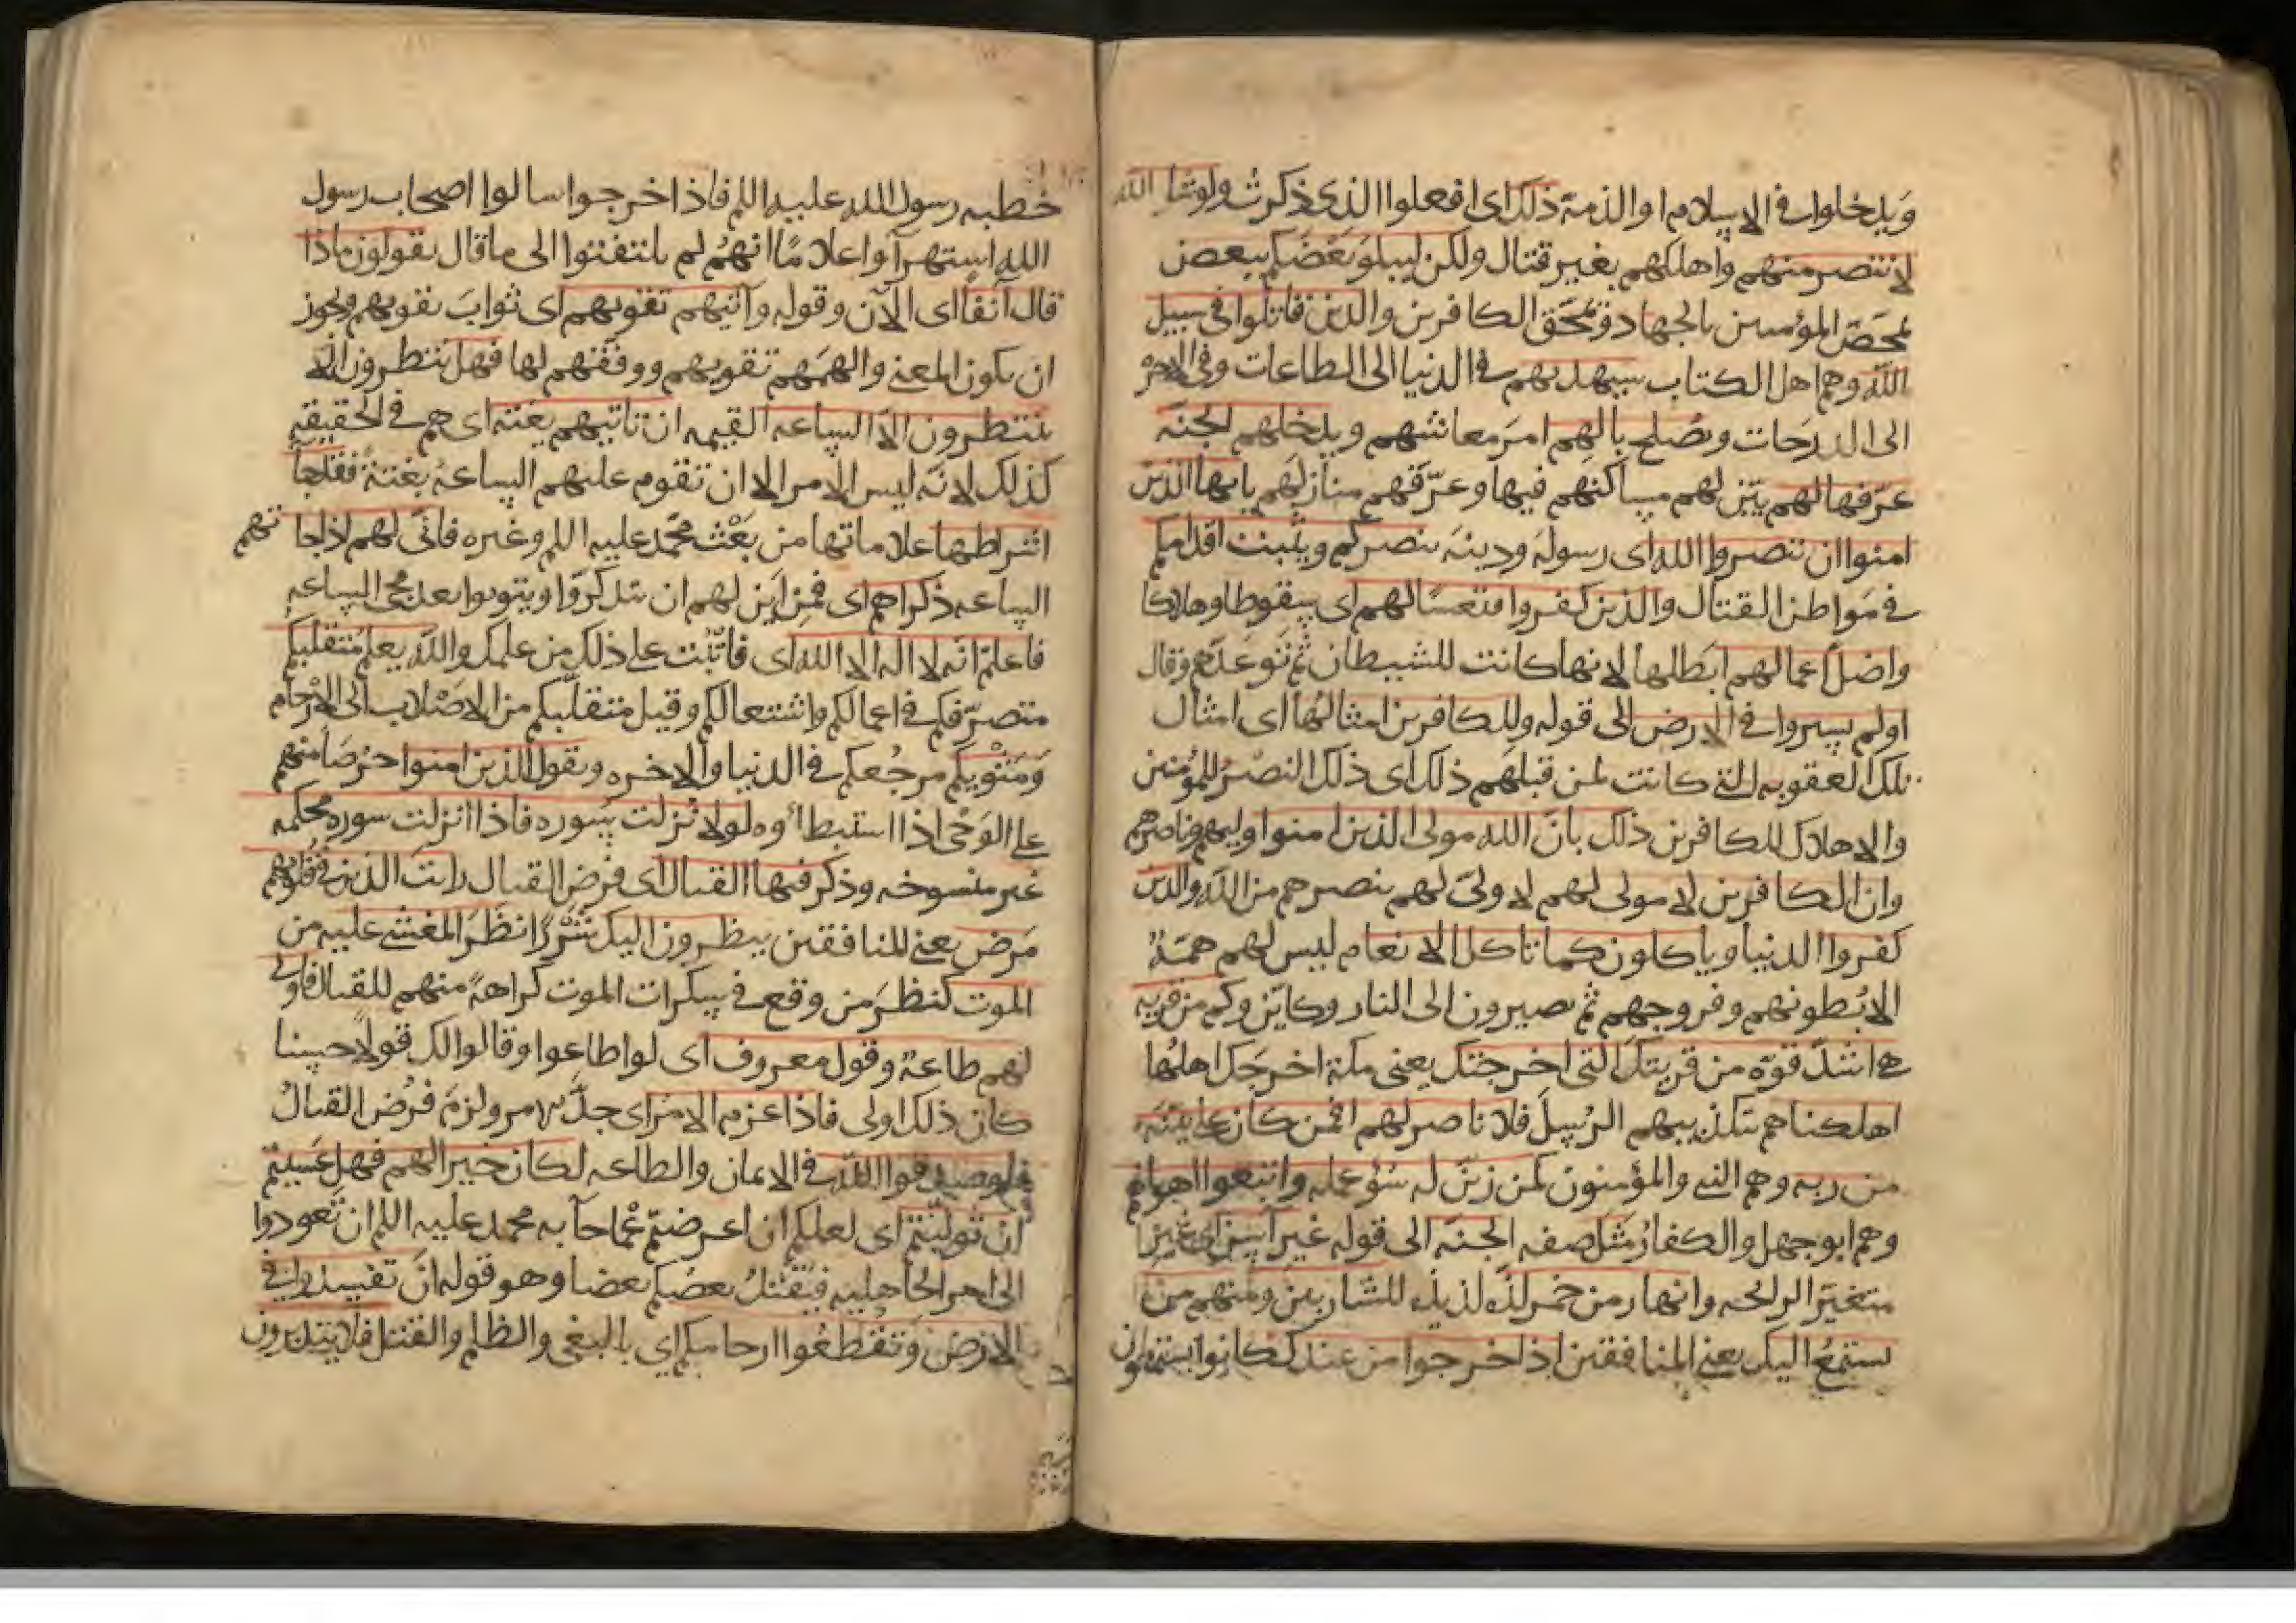 ويدخلوا في الاسلام او الذمة ذلك اى افعلوا الذى ذكرتُ ولو شا الله
لانتصر منهم واهلكهم بغير قتال ولكن ليبلو بَعْضَكم ببعض
لمحص المؤمنين بالجهاد ويمحق الكافرين والذين قاتلوا في سبيل
الله وهم اهل الكتاب سيهديهم في الدنيا الى الطاعات وفي الاخره
الى الدرجات ويُصلح بالهم امرَ معاشهم ويدخلهم الجنّه
عرّفها لهم بيّن لهم مساكنهم فيها وعرّفهم منازلهم يايها الذين
امنوا ان تنصروا الله اى رسوله ودينه ينصركم ويثبت اقدامكم
في مَواطن القتال والذين كفروا فتعسًا لهم اى سقوطا وهلاكا
واضل اعمالهم ابطلها لانها كانت للشيطان ثم توعدهم وقال
اولم يسيروا في الارض الى قوله وللكافرين امثالُها اى امثال
تلك العقوبه التي كانت لمن قبلهم ذلك اى ذلك النصْر للمؤمنين
والاهلاك للكافرين ذلك بانّ الله مولى الذين امنوا وليهم وناصرهم
وان الكافرين لا مولى لهم لا ولىّ لهم ينصرهم من الله والذين
كفروا الدنيا وياكلون كما تاكل الانعام ليس لهم همّةٌ
الا بُطونهم وفروجهم ثم يصيرون الى النار وكايّن وكم من قريه
هي اشدّ قوّه من قريتك التي اخرجتك يعنى مكة اخرجَك اهلُها
اهلكناهم بتكذيبهم الرُسلَ فلا ناصر لهم افمن كان على بيّنَه
من ربه وهم النبي والمؤمنون كمن زيّن له سُوُ عمله واتبعوا اهواهم
وهم ابو جهل والكفارُ مثل صفه الجنّه الى قوله غير آسن اى غير
متغيّر الرائحه وانهار من خمر لذّه لذيذه للشاربين ومنهم من
يستمعُ اليك يعنى المنافقين اذا خرجوا من عندك كانوا يستمعون
خطبه رسول الله عليه اللم فاذا خرجوا سالوا اصحاب رسول
الله استهزآ واعلامًا انهُم لم يلتفتوا الى ما قال يقولون ماذا
قال آنفا اى الآن وقوله وآتيهم تقويهم اى ثوابَ تقويهم ويجوز
ان يكون المعنى والهمَهم تقويهم ووفقهم لها فهل ينتظرون الا
ينتظرون الاّ الساعه القيمه ان تاتيهم بغته اى هم في الحقيقه
كذلك لانّه ليس الامر الا ان تقوم عليهم الساعةُ بغتةً فقد جا
اشراطها علاماتها من بَعْث محمّد عليه اللم وغيره فانّى لهم اذا جا تهم
الساعه ذكراهم اى فمِن اين لهم ان يتذكروا ويتوبوا بعد مجى الساعه
فاعلم انّه لا اله الا الله اى فاثْبُت على ذلك من علمك والله يعلم مُتقلبكم
متصرّفكم في اعمالكم واشتعالكم وقيل متقلّبكم من الاصْلاب الى الارْحام
وَمَثْويكم مرجُعكم في الدنيا والاخره ويقول الذين امنوا حِرْصًا منهم
على الوَحْى اذا استبطاوه لولا نُزلت سوره فاذا انزلت سوره محكمه
غير منسوخه وذكر فيها القتال اى فرض القتال رايت الذين في قُلُوبهم
مَرض يعنى المنافقين ينظرون اليك شَزْرًا نظرَ المغشى عليه من
الموت كنظرَ من وقع في سكرات الموت كراهةً منهم للقتال فاولى
لهم طاعةٌ وقول معروف اى لو اطاعوا وقالوا لك قولًا حسنا
كان ذلك اولى فاذا عزم الامرْ اى جدّ الامر ولزمَ فرْض القتال
فلو صدقوا الله في الايمان والطاعه لكان خيرا لهم فهل عَسيتم
ان توليتم اى لعلكم ان اعرضتم عمّا جآ به محمد عليه اللم ان تعودوا
الى امر الجاهليه فيَقتلُ بعضُكم بعضا وهو قوله ان تفسدوا في
الارض وتقطعوا ارحامكم اي بالبغى والظلم والقتل فلا يتدبرون